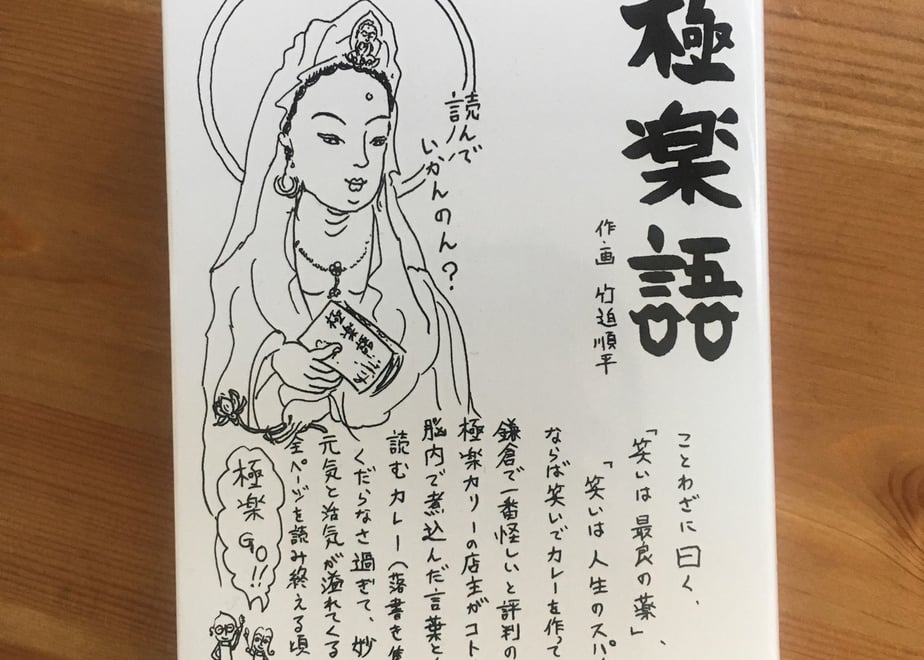 極楽語
作・画 竹迫順平
読んで
いかんのん?
極楽語
ことわざに曰く、
「笑いは最良の薬」、
「笑いは人生のスパ
ならば笑いでカレーを作って
鎌倉で一番怪しいと評判の
極楽カリーの店主がコト
脳内で煮込んだ言葉と
読むカレー(落書き集
くだらなさ過ぎて、妙
元気と活気が溢れてくる
全ページを読み終える頃
極楽
GO!!